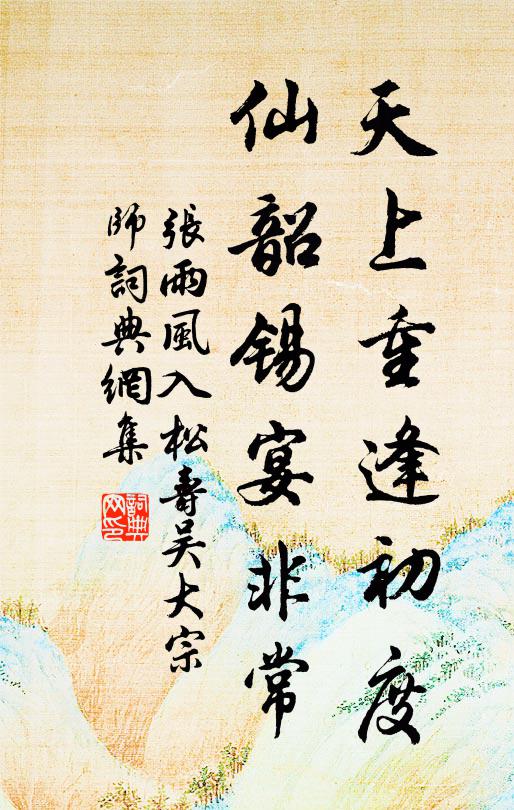 天上重逢初度
仙韶錫宴非常
張雨風入松壽吳大宗
師詞典網集
詞典網印